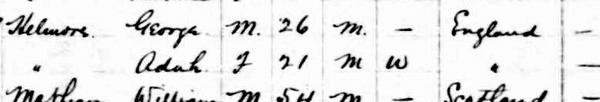 Helmore George M. 26 M. — England —
" Aduh F 21 M W " —
William M 54 M — Scotland —